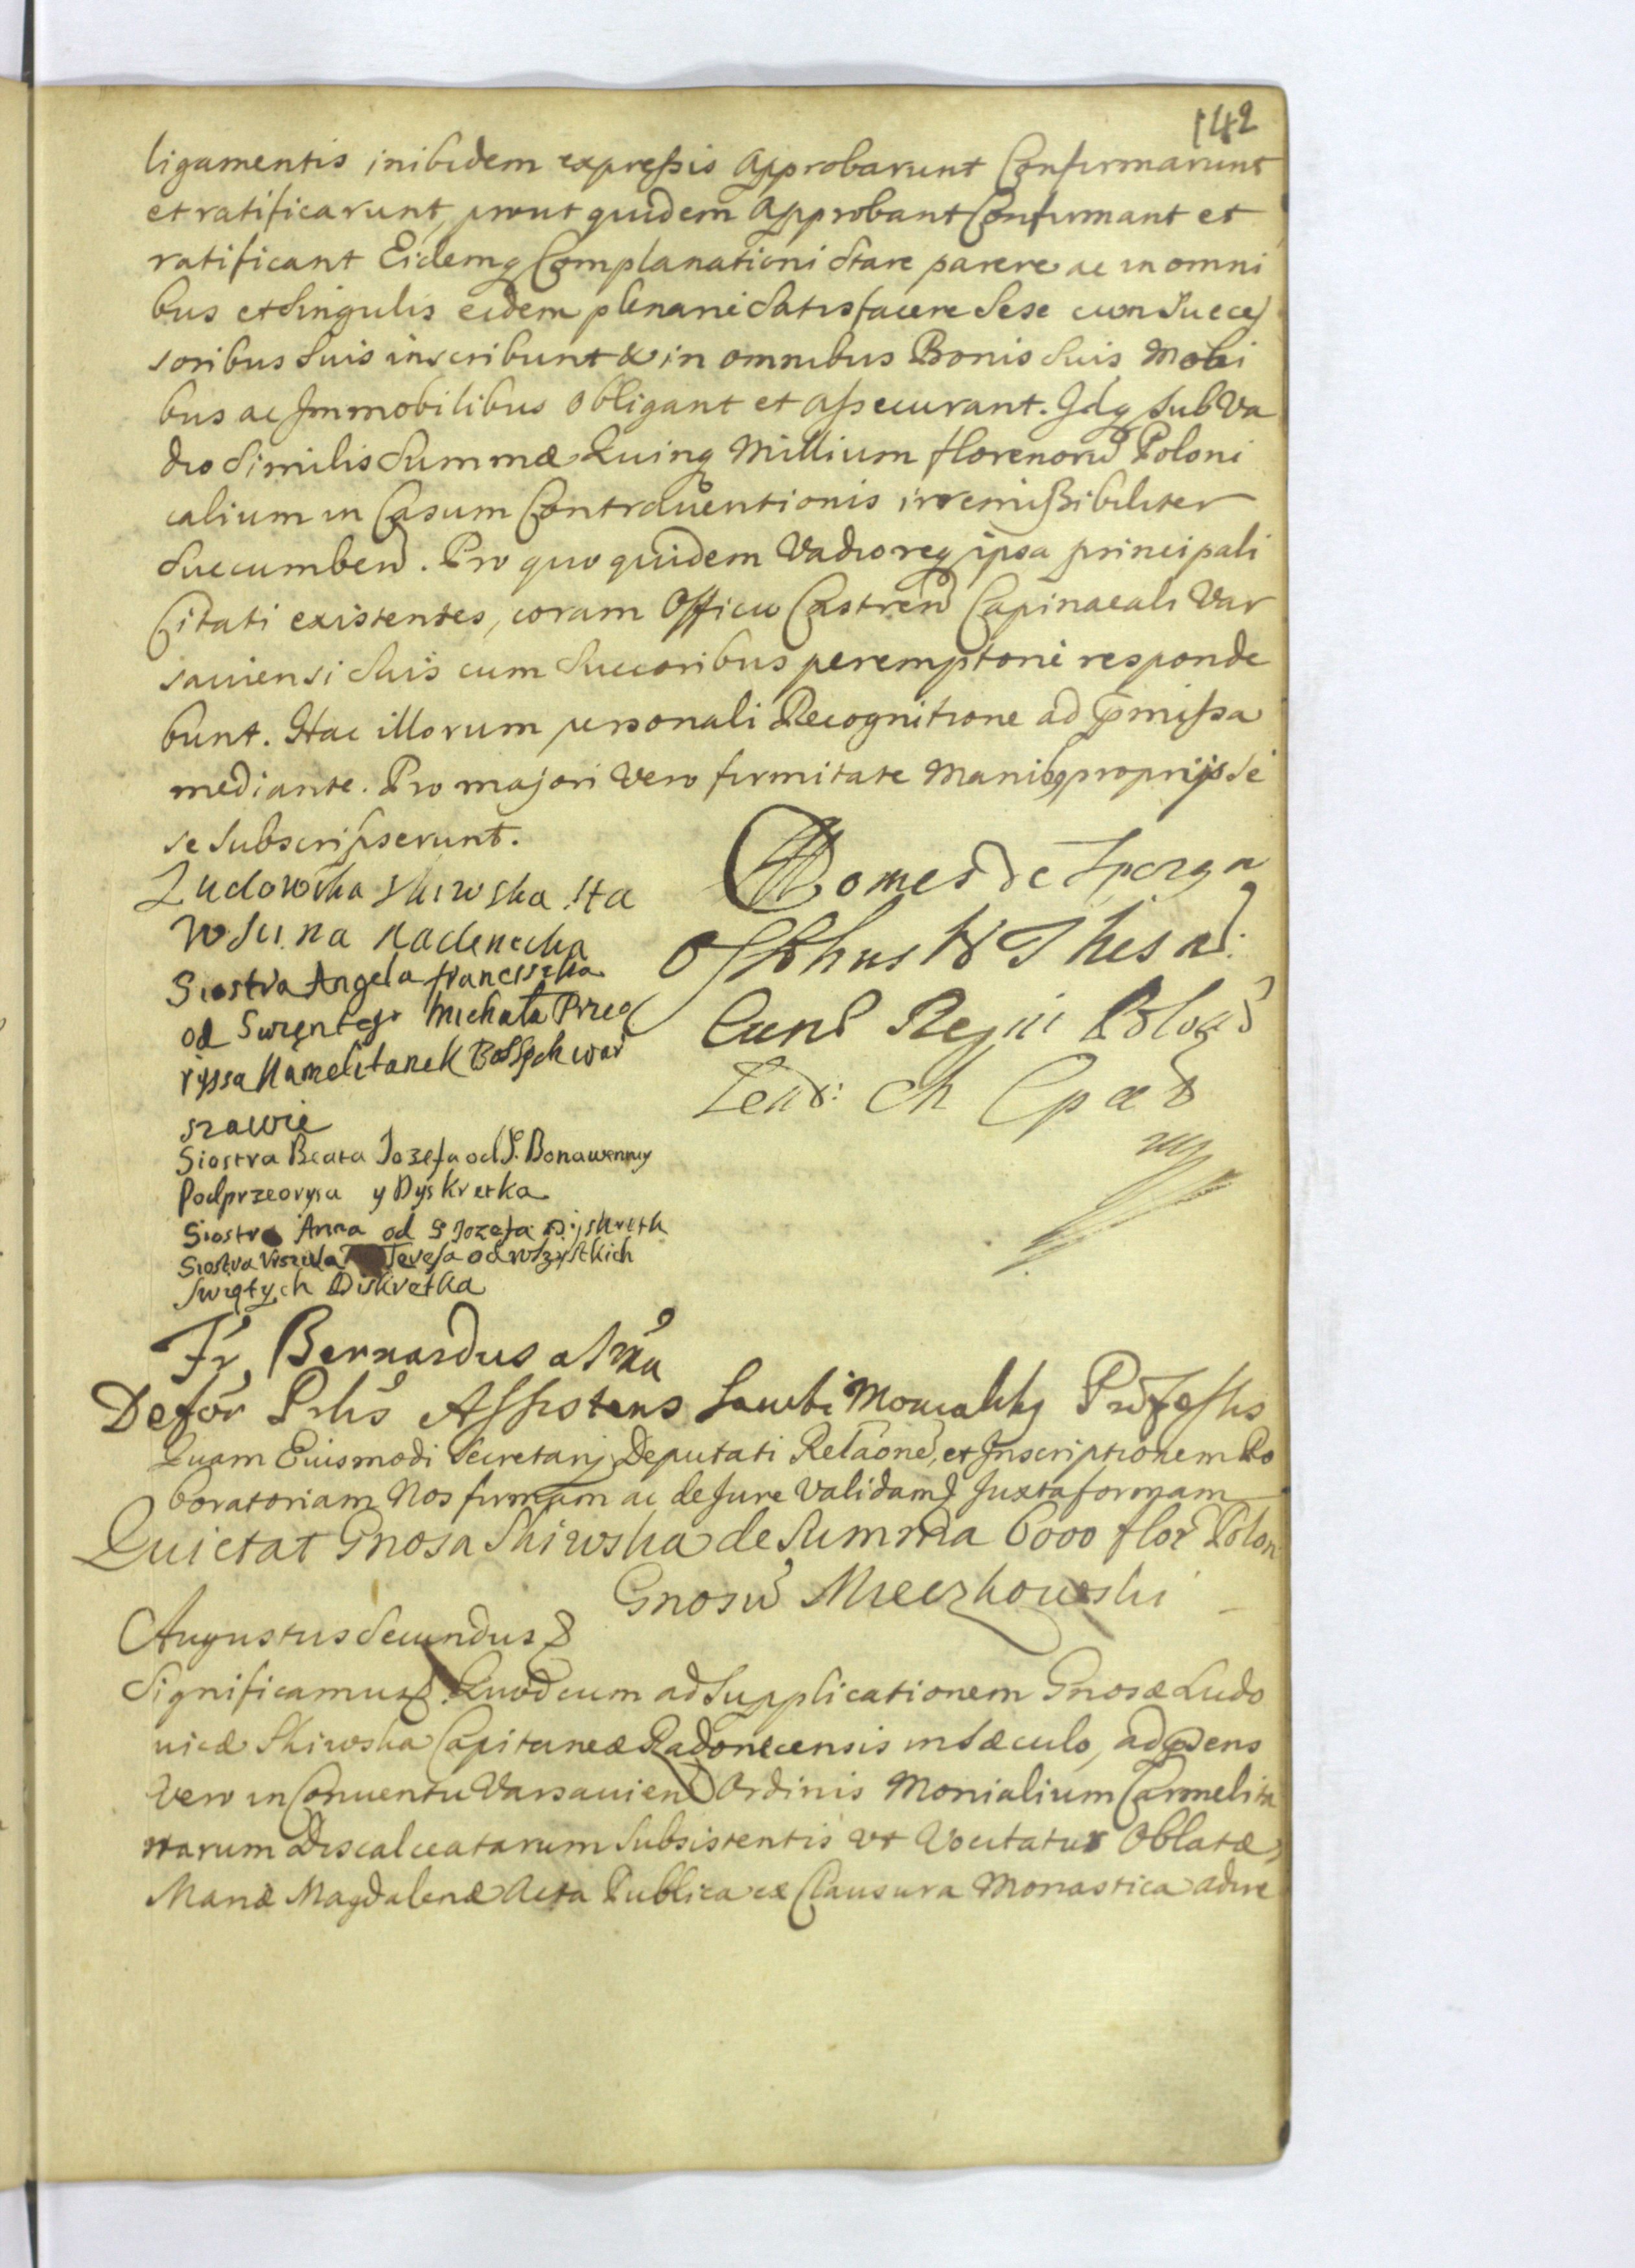 142
ligamentis inibidem expressis Approbarunt Confirmarunt
et ratificarunt, prout quidem Approbant Confirmant et
ratificant Eidemq Complanationi Stare parere ac in omni
bus et Singulis eidem plenarie Satisfacere Sese cum Succes
soribus Suis inscribunt & in omnibus Bonis Suis Mobi
bus ac Immobilibus Obligant et assecurant. Idq sub Va
dio Similis Summæ Quinq Millium florenorũ Poloni
calium in Casum Contraventionis irremissibiliter
Succumbeñ. Pro quo quidem Vadio req ipsa principali
Citati existentes, coram Officio Castreñ Capinaeali Var
saviensi Suis cum Succoribus peremptorie responde
bunt. Hac illorum personali Recognitione ad pmissa
mediante. Pro majori Vero firmitate Manibq proprijs Se
se Subscripserunt.
Ludowika Skiwska Sta
wscina Radenecka
Siostra Angela franciszka
od Swiętego Michała Przeo
ryssa Karmelitanek Bossych war
szawie
Siostra Beata Jozefa od S. Bonawentury
Podprzeorysa y Dyskretka
Siostra Anna od S Jozefa Dijskretk
Siostra Vrszula Teresa od wszystkich
Swiętych Diskretka
Comes de
Regni
Fr Bernardus a
Defor Assistens Professus
Quam Eiusmodi Secretarij Deputati Relãonẽ, et Inscriptionem Ro
boratoriam Nos firmam ac de Jure Validam& Juxta formam
Quietat Gnosa Skiwska de Summa 6000 flor Polon
Gnosũ Mieczkowski
Augustus Secundus &
Significamus& Quod cum ad Supplicationem Gnosæ Ludo
vicæ Skiwska Capitaneæ Radonecensis in Sæculo, ad pdens
Vero in Conventu Varsavieñ Ordinis Monialium Carmelita
narum Discalceatarum Subsistentis ut Vocitatur Oblatæ,
Mariæ Magdalenæ Acta Publica ex Clausura Monastica adire